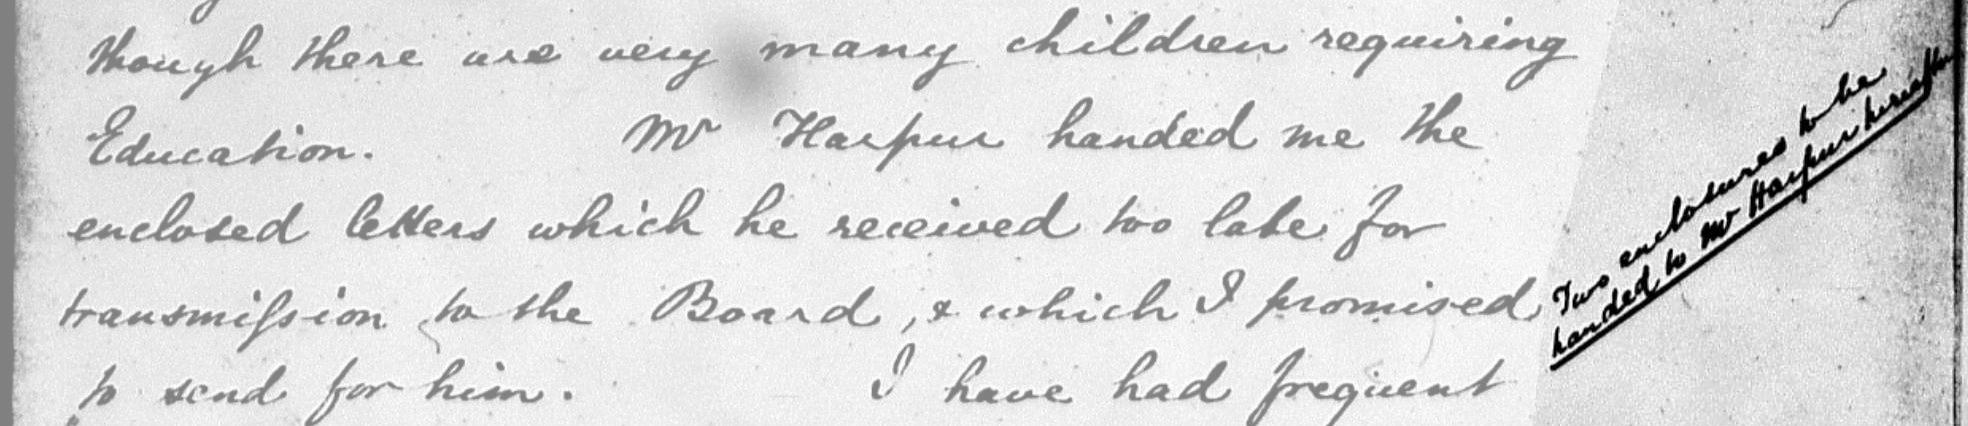 though there are very many children requiring
Education. Mr Harpur handed me the
enclosed letters which he received too late for
transmiſsion to the Board, & which I promised
to send for him. I have had frequent
Two enclosures to be
handed to Mr Harpur hereafter